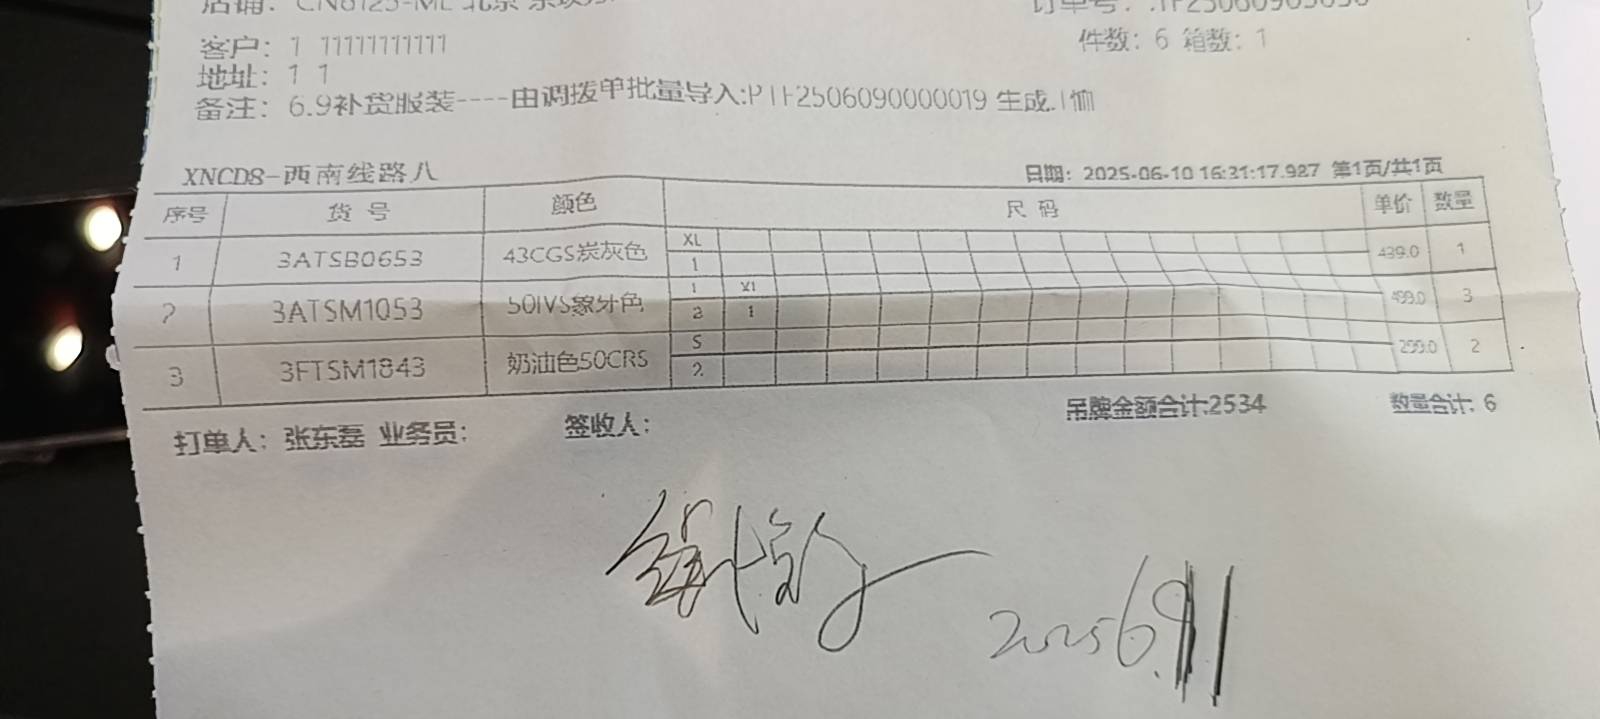 客户: 1 11111111111
件数: 6 箱数: 1
地址: 1 1
备注: 6.9补货服装----由调拨单批量导入:PTF2506090000019 生成.T恤
XNCD8-西南线路八
日期: 2025-06-10 16:31:17.927 第1页/共1页
序号 货号 颜色 尺码 单价 数量
1 3ATSB0653 43CGS炭灰色 XL 1 439.0 1
2 3ATSM1053 50IVS象牙色 2 XL 1 499.0 3
3 3FTSM1843 奶油色50CRS S 2 299.0 2
吊牌金额合计:2534 数量合计: 6
打单人: 张东磊 业务员: 签收人:
2025 6.11